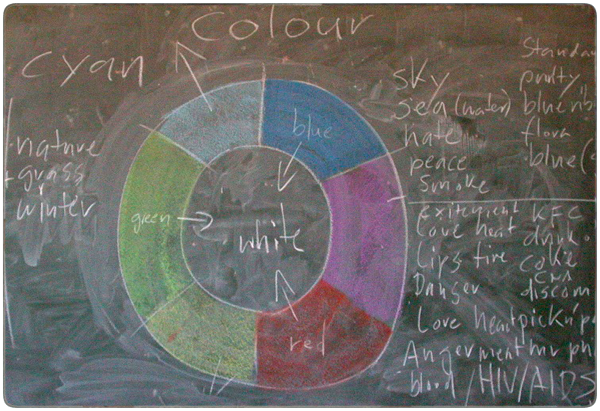 Colour
cyan
blue
green
white
red
nature
grass
winter
sky
sea (water)
hate
peace
smoke
Standa
purity
blue
flora
blue
Exitement
Love heat
Lips fire
Danger
Love heart
Anger
blood / HIV/AIDS
KFC
drink
coke
CNA
discom
pick n' pa